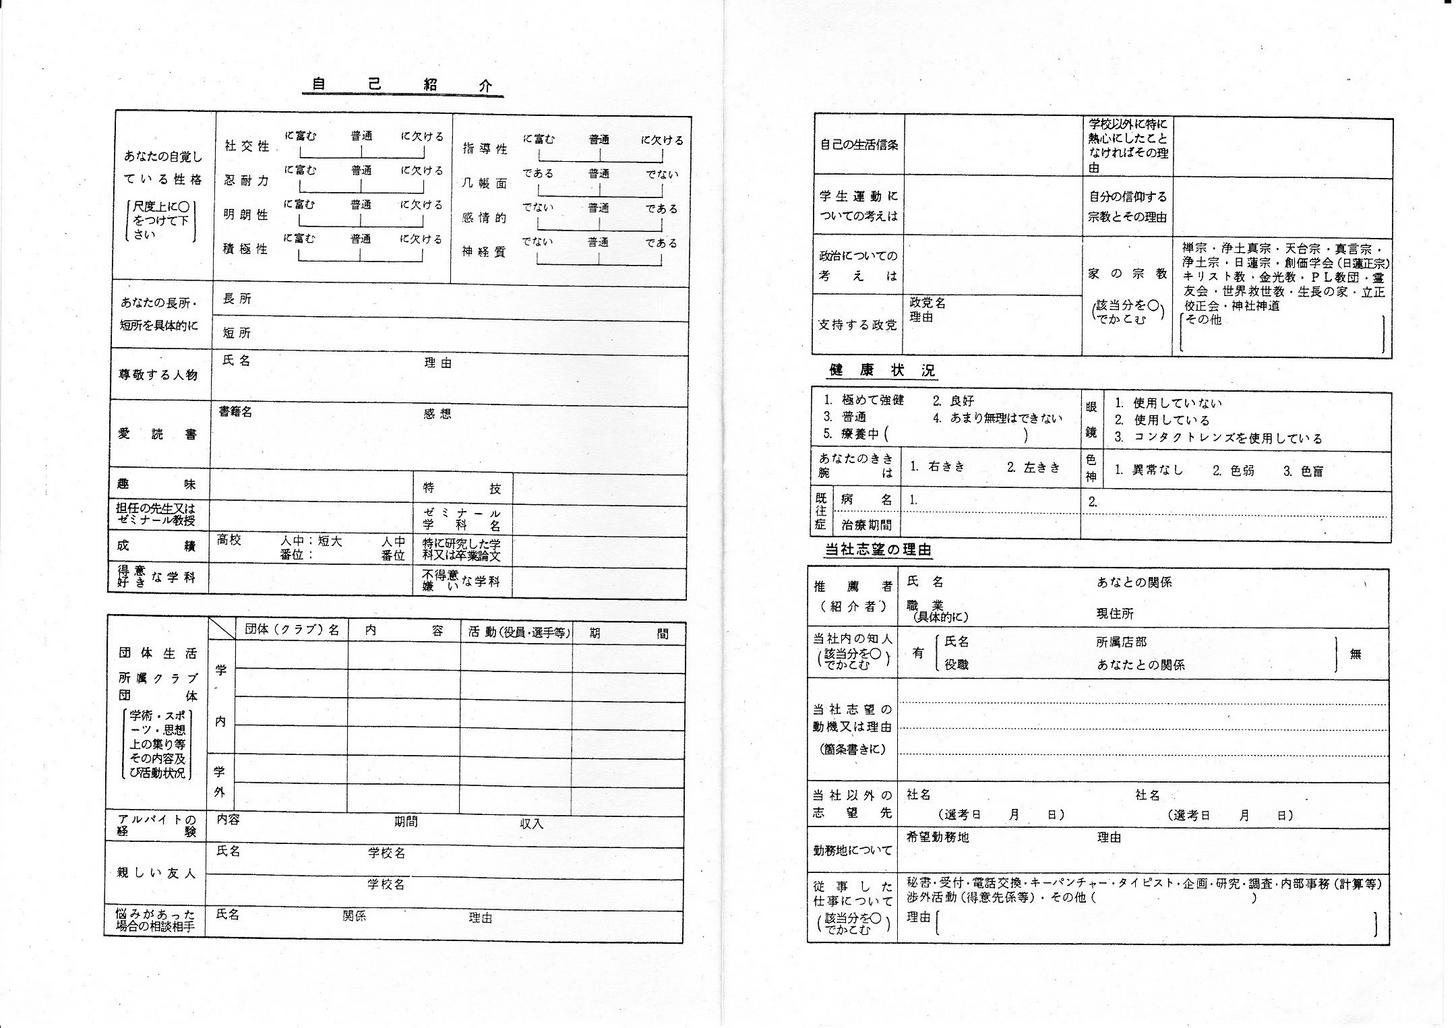 自己紹介
あなたの自覚し
ている性格
尺度上に〇
をつけて下
さい
社交性 に富む 普通 に欠ける
忍耐力 に富む 普通 に欠ける
明朗性 に富む 普通 に欠ける
積極性 に富む 普通 に欠ける
指導性 に富む 普通 に欠ける
几帳面 である 普通 でない
感情的 でない 普通 である
神経質 でない 普通 である
あなたの長所・
短所を具体的に
長所
短所
尊敬する人物
氏名 理由
愛読書
書籍名 感想
趣味
特技
担任の先生又は
ゼミナール教授
ゼミナール
学科名
成績
高校 人中:短大 人中
番位: 番位
特に研究した学
科又は卒業論文
得意
好き
な学科
不得意
嫌い
な学科
団体(クラブ)名 内容 活動(役員・選手等) 期間
団体生活
所属クラブ
団体
学術・スポ
ーツ・思想
上の集り等
その内容及
び活動状況
学内
学外
アルバイトの
経験
内容 期間 収入
親しい友人
氏名 学校名
学校名
悩みがあった
場合の相談相手
氏名 関係 理由
自己の生活信条
学校以外に特に
熱心にしたこと
なければその理
由
学生運動に
ついての考えは
自分の信仰する
宗教とその理由
政治についての
考えは
支持する政党
政党名
理由
家の宗教
(該当分を〇
でかこむ)
禅宗・浄土真宗・天台宗・真言宗・
浄土宗・日蓮宗・創価学会(日蓮正宗)
キリスト教・金光教・PL教団・霊
友会・世界救世教・生長の家・立正
佼正会・神社神道
その他
健康状況
1. 極めて強健 2. 良好
3. 普通 4. あまり無理はできない
5. 療養中( )
眼鏡
1. 使用していない
2. 使用している
3. コンタクトレンズを使用している
あなたのきき
腕は
1. 右きき 2. 左きき
色神
1. 異常なし 2. 色弱 3. 色盲
既往症
病名 1. 2.
治療期間
当社志望の理由
推薦者
(紹介者)
氏名 あなとの関係
職業
(具体的に)
現住所
当社内の知人
(該当分を〇
でかこむ)
有
氏名 所属店部
役職 あなたとの関係
無
当社志望の
動機又は理由
(箇条書きに)
当社以外の
志望先
社名 社名
(選考日 月 日) (選考日 月 日)
勤務地について
希望勤務地 理由
従事した
仕事について
(該当分を〇
でかこむ)
秘書・受付・電話交換・キーパンチャー・タイピスト・企画・研究・調査・内部事務(計算等)
渉外活動(得意先係等)・その他( )
理由